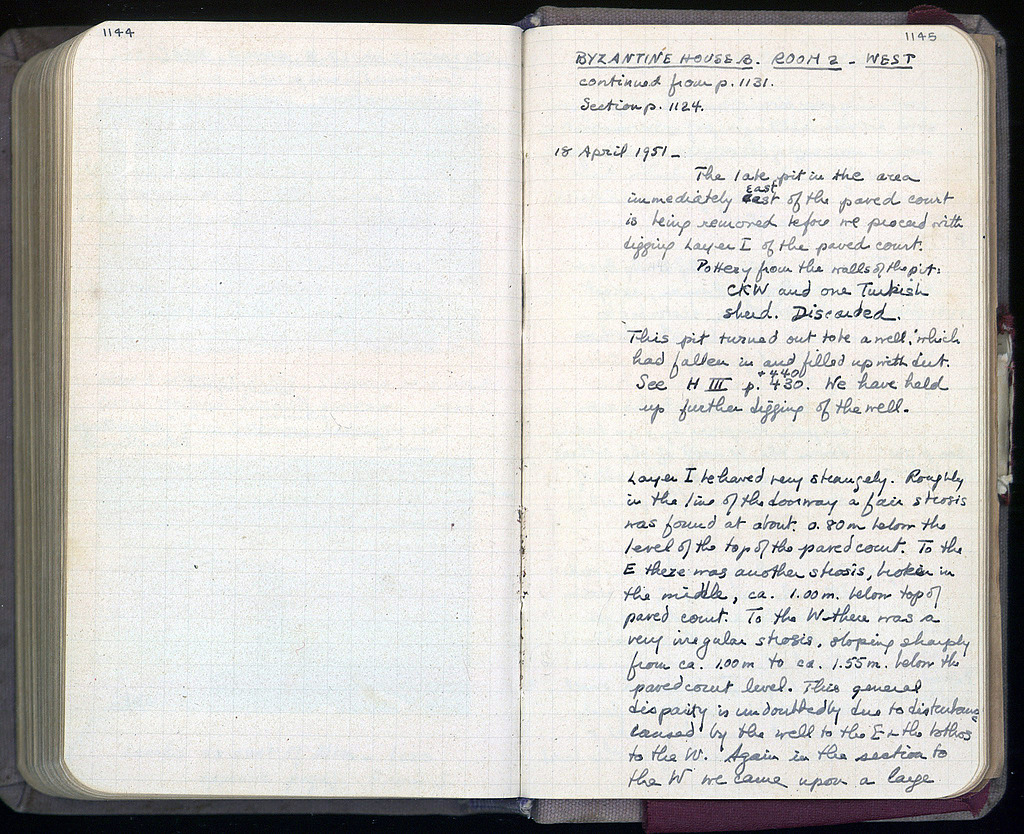 1144
1145
BYZANTINE HOUSE B. ROOM 2 - WEST
continued from p. 1131.
Section p. 1124.
18 April 1951 -
The late pit in the area
immediately east of the paved court
is being removed before we proceed with
digging Layer I of the paved court.
Pottery from the walls of the pit:
CKW and one Turkish
sherd. Discarded.
This pit turned out to be a well, which
had fallen in and filled up with dirt.
See H III p. 430 + 440. We have held
up further digging of the well.
Layer I behaved very strangely. Roughly
in the line of the doorway a fair strosis
was found at about 0.80 m below the
level of the top of the paved court. To the
E there was another strosis, broken in
the middle, ca. 1.00 m. below top of
paved court. To the W there was a
very irregular strosis, sloping sharply
from ca. 1.00 m to ca. 1.55 m. below the
paved court level. This general
disparity is undoubtedly due to disturbance
caused by the well to the E + the bothros
to the W. Again in the section to
the W we came upon a large